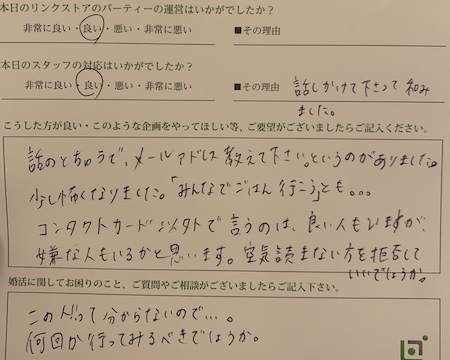 本日のリンクストアのパーティーの運営はいかがでしたか？
非常に良い・良い・悪い・非常に悪い ■その理由
本日のスタッフの対応はいかがでしたか？
非常に良い・良い・悪い・非常に悪い ■その理由 話しかけて下さって和み
ました。
こうした方が良い・このような企画をやってほしい等、ご要望がございましたらご記入ください。
話のとちゅうで、メールアドレス教えて下さい。というのがありました。
少し怖くなりました。「みんなでごはん行こう」とも。。。
コンタクトカード以外で言うのは、良い人もいますが、
嫌な人もいるかと思います。空気読まない方を拒否して
いいでしょうか。
婚活に関してお困りのこと、ご質問やご相談がございましたらご記入下さい。
この人!!って分からないので・・・。
何回か行ってみるべきでしょうか。